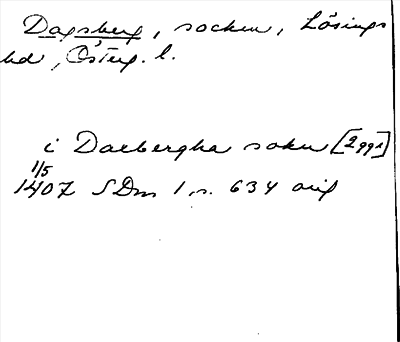 Dagsberg, socken, Lösings
hd, Österg. l.
i Daebergha sokn [2 ggr]
1/5
1407 SDns 1, s. 634 orig